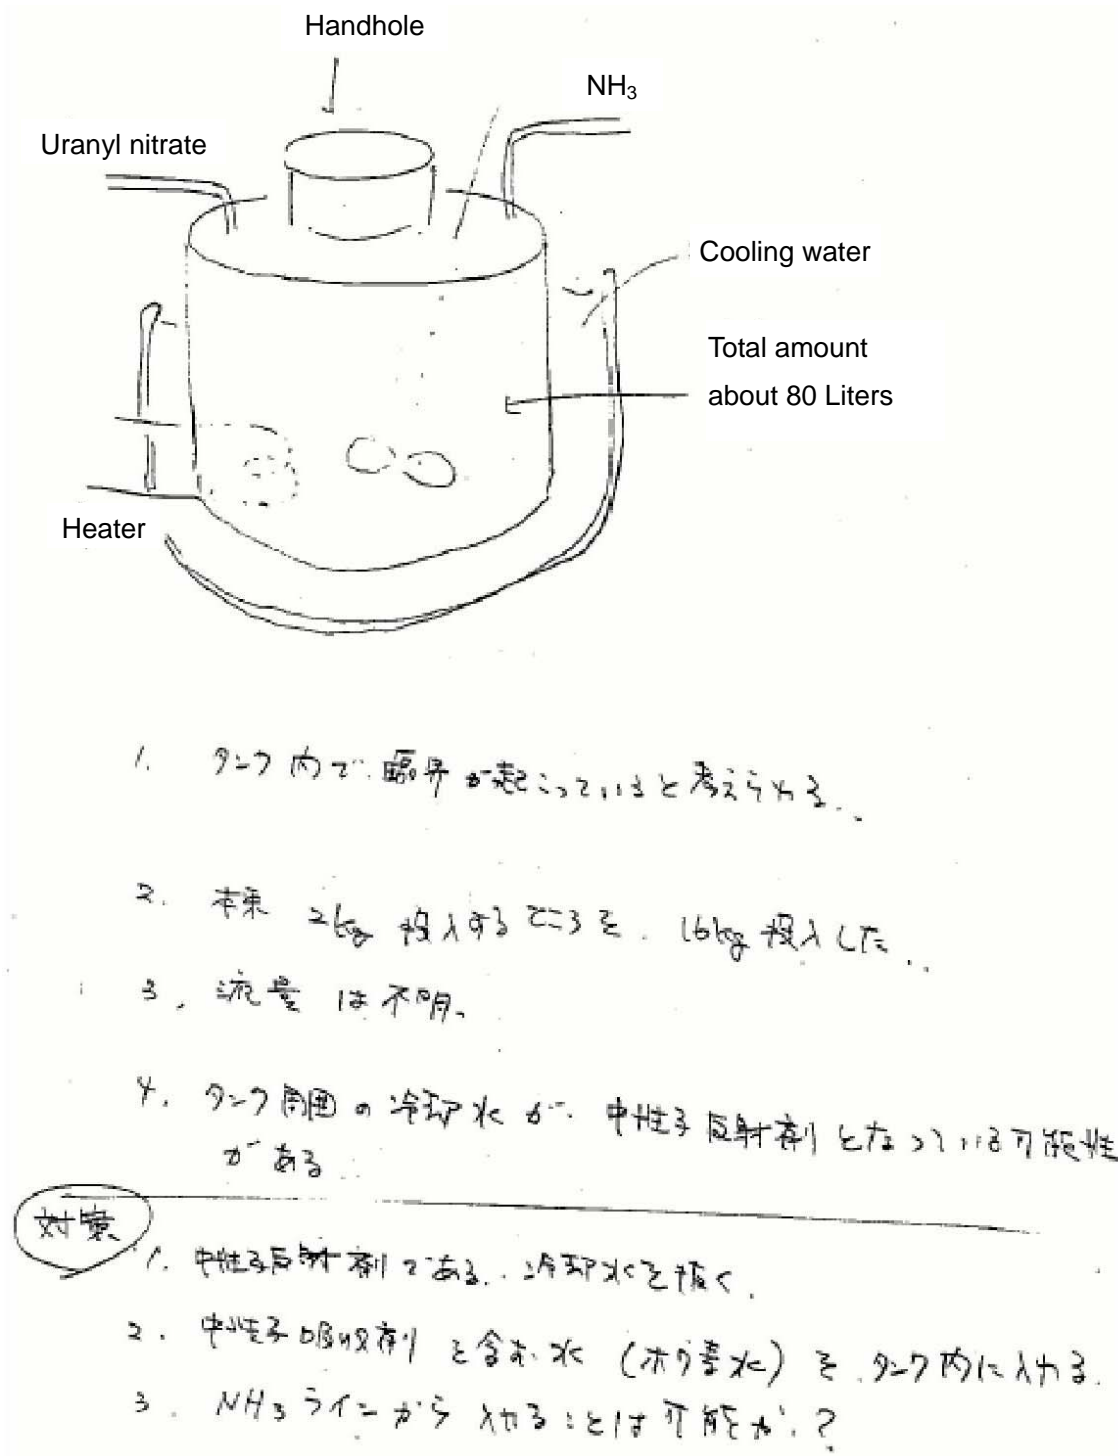 Handhole
NH₃
Uranyl nitrate
Cooling water
Total amount
about 80 Liters
Heater
1. タンク内で臨界が起こっていると考えられる.
2. 本来 2kg 投入するところを. 16kg 投入した.
3. 流量は不明.
4. タンク周囲の冷却水が. 中性子反射剤となっている可能性
がある
対策
1. 中性子反射剤である. 冷却水を抜く.
2. 中性子吸収剤を含む水 (ホウ素水) を タンク内に入れる.
3. NH₃ ラインから 入れることは可能か. ?